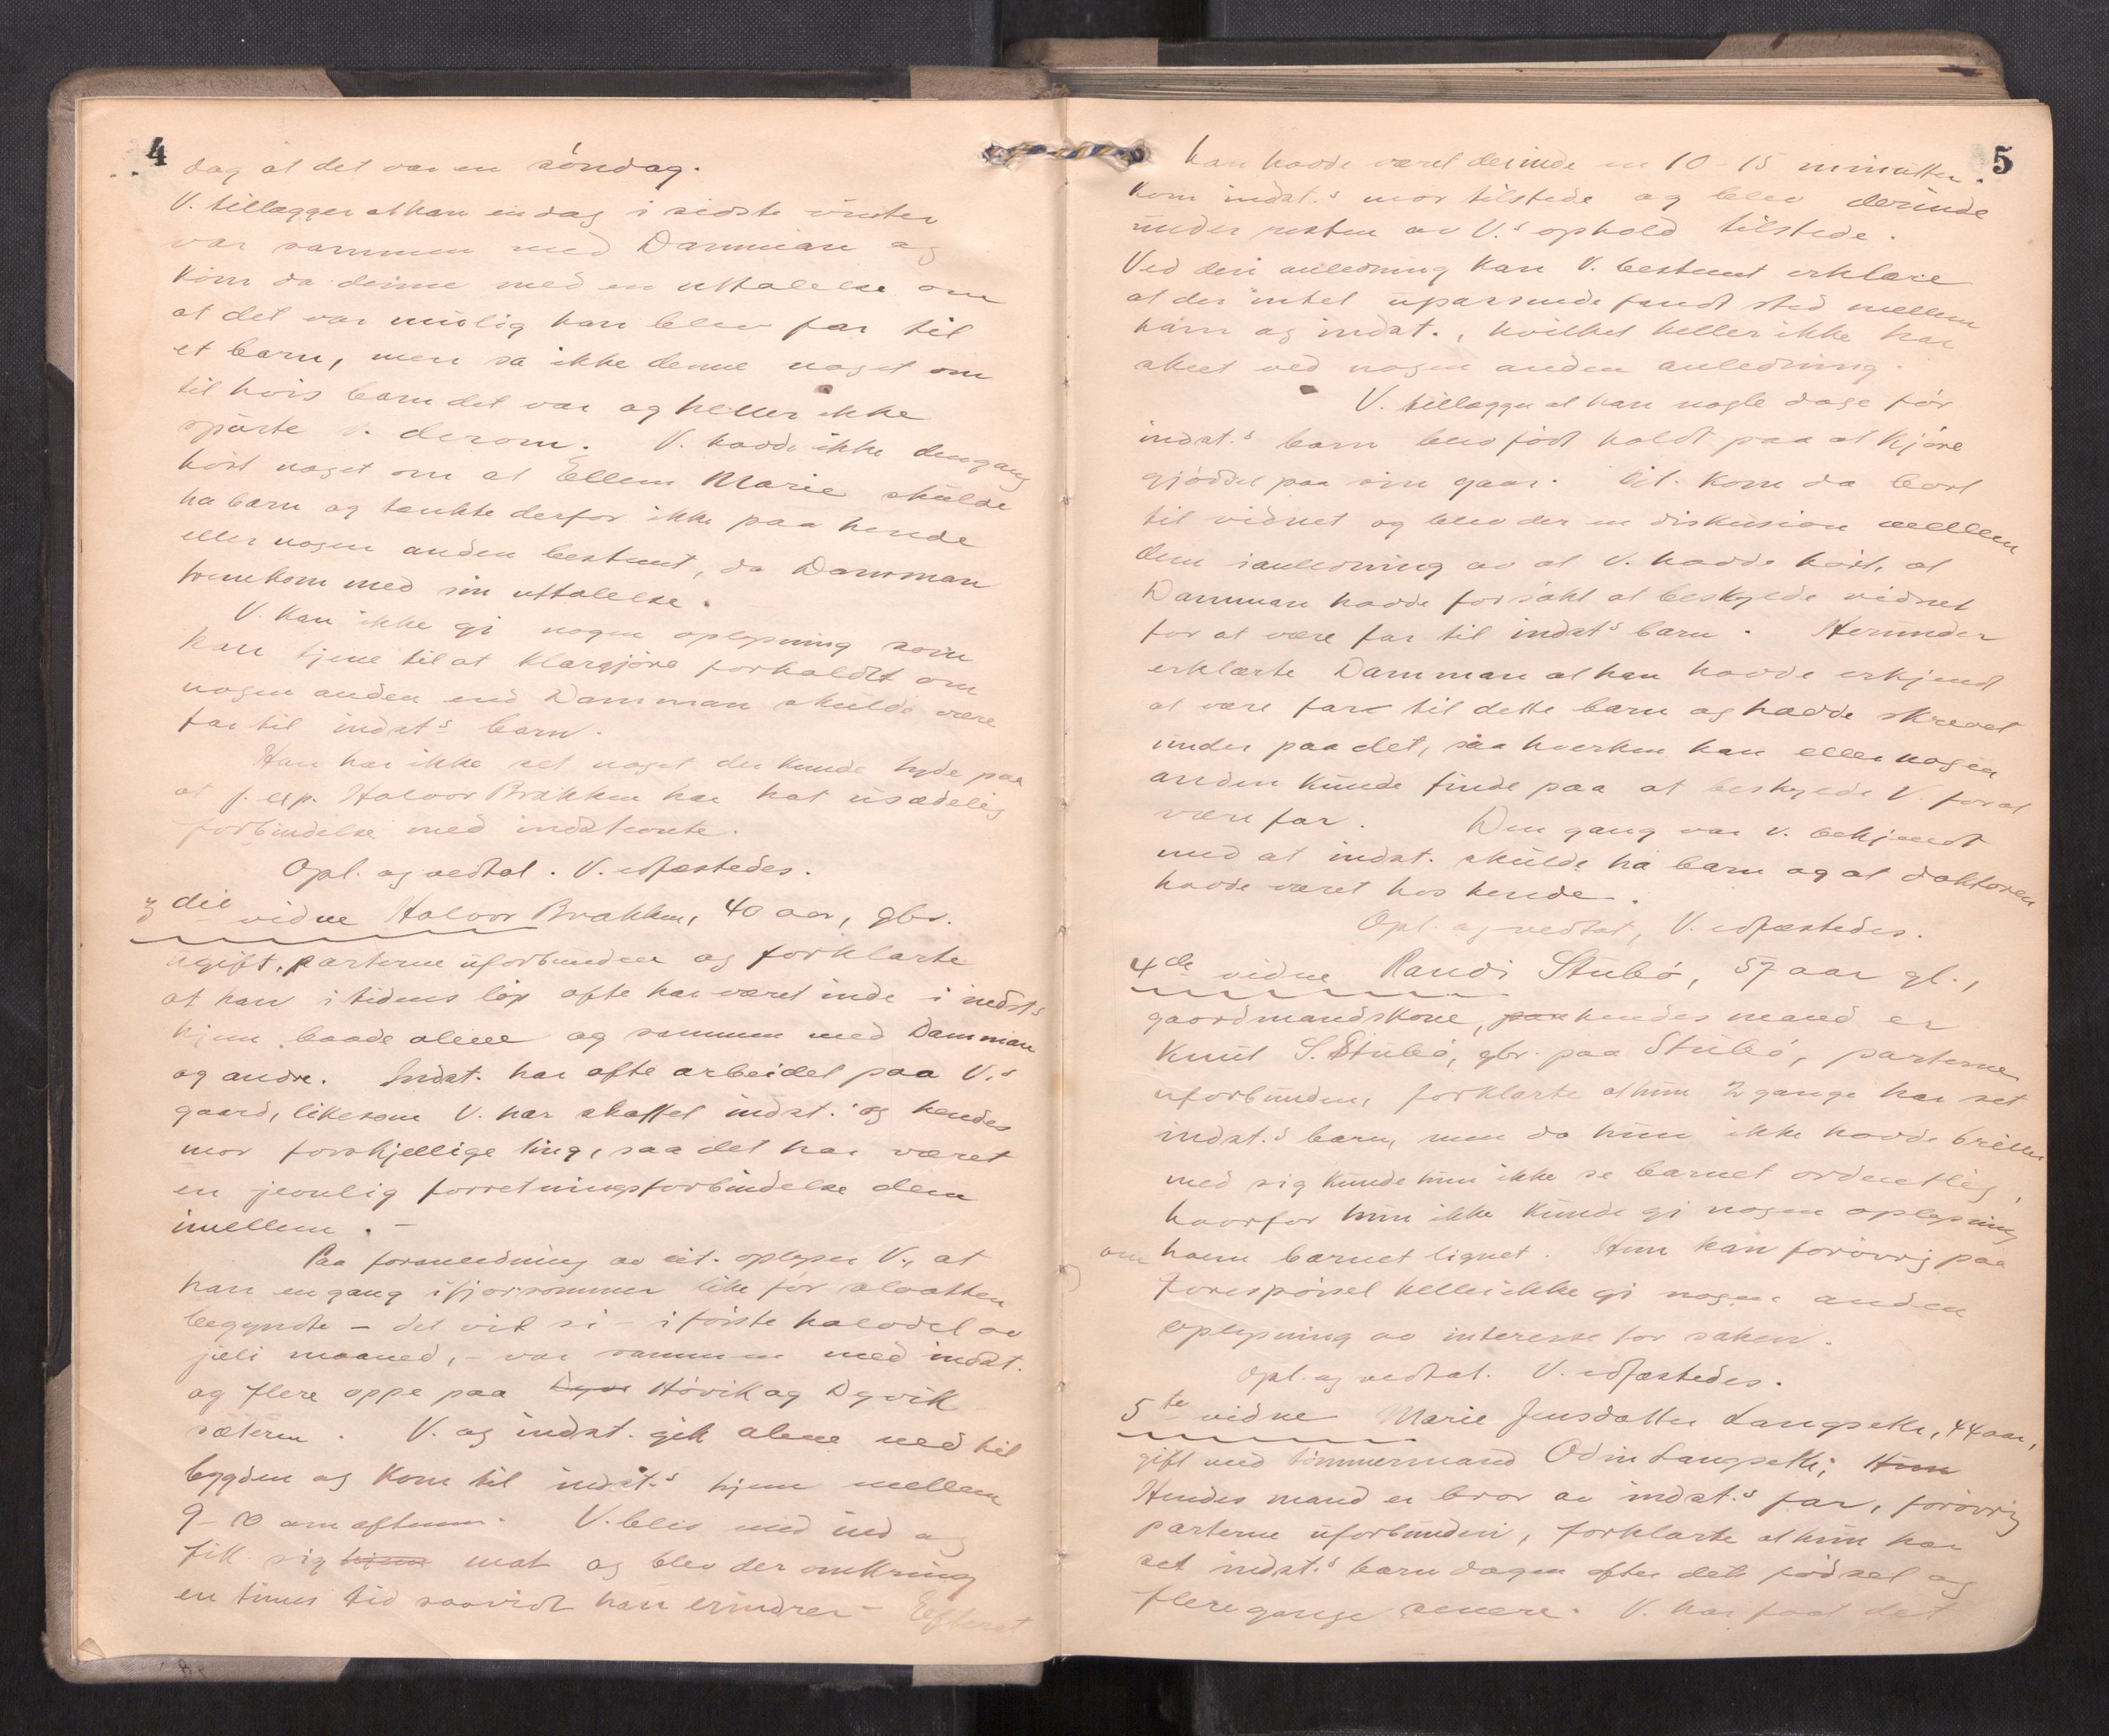 4
dag at det var en söndag.
V. tillægger at han en dag i sidste vinter
var sammen med Damman og
kom da denne med en uttalelse om
at det var mulig han blev far til
et barn, men sa ikke denne noget om
til hvis barn det var og heller ikke
spurte V. derom. V. havde ikke dengang
hört noget om at Ellen Marie skulde
ha barn og tænkte derfor ikke paa hende
eller nogen anden bestemt, da Damman
fremkom med sin uttalelse.
V. kan ikke gi nogen oplysning som
kan tjene til at klargjöre forholdet om
nogen anden end Damman skulde være
far til indst.s barn.
Han har ikke set noget der kunde tyde paa
at f. eks. Halvor Brakken har hat usædelig
forbindelse med indstevnte.
Opl. og vedtat. V. edfæstedes.
3die vidne Halvor Brakken, 40 aar, gbr.
ugift, parterne uforbunden og forklarte
at han i tidens löp ofte har været inde i indst.s
hjem baade alene og sammen med Damman
og andre. Indst. har ofte arbeidet paa V.s
gaard, likesom V. har skaffet indst. og hendes
mor forskjellige ting, saa det har været
en jevnlig forretningsforbindelse dem
imellem. -
Paa foranledning av cit. oplyser V., at
han en gang ifjorsommer like för slaatten
begyndte - det vil si - i förste halvdel av
juli maaned, - var sammen med indst.
og flere oppe paa Dyvi Hövik og Dyvik
sæteren. V. og indst. gik alene ned til
bygden og kom til indst.s hjem mellem
9-10 om aftenen. V. blev med ind og
fik sig hjem mat og blev der omkring
en times tid saavidt han erindrer - Efterat
5
han havde været derinde en 10-15 minutter
kom indst.s mor tilstede og blev derinde
under resten av V.s ophold tilstede.
Ved den anledning kan V. bestemt erklære
at der intet upassende fandt sted mellem
ham og indst., hvilket heller ikke har
skeet ved nogen anden anledning.
V. tillægger at han nogle dage för
indst.s barn blev födt holdt paa at kjöre
gjödsel paa sin gaar. Cit. kom da bort
til vidnet og blev der en diskusion mellem
dem i anledning av at V. havde hört, at
Damman havde forsökt at beskylde vidnet
for at være far til indst.s barn. Herunder
erklærte Damman at han havde erkjendt
at være far til dette barn og hadde skrevet
under paa det, saa hverken han eller nogen
anden kunde finde paa at beskylde V. for at
være far. Den gang var V. bekjendt
med at indst. skulde ha barn og at doktoren
havde været hos hende.
Opl. og vedtat, V. edfæstedes.
4de vidne Randi Stubö, 57 aar gl.,
gaardmandskone, paa hendes mand er
Knut S. Stubö, gbr. paa Stubö, parterne
uforbunden, forklarte at hun 2 gange har set
indst.s barn, men da hun ikke havde briller
med sig kunde hun ikke se barnet ordentlig,
hvorfor hun ikke kunde gi nogen oplysning
om hvem barnet lignet. Hun kan forövrig paa
forespörsel heller ikke gi nogen anden
oplysning av interesse for saken.
Opl. og vedtat. V. edfæstedes.
5te vidne Marie Jensdatter Langseth, 44 aar,
gift med tömmermand Odin Langseth; Hun
Hendes mand er bror av indst.s far, forövrig
parterne uforbunden, forklarte at hun har
set indst.s barn dagen efter dets födsel og
flere gange senere. V. har faat det